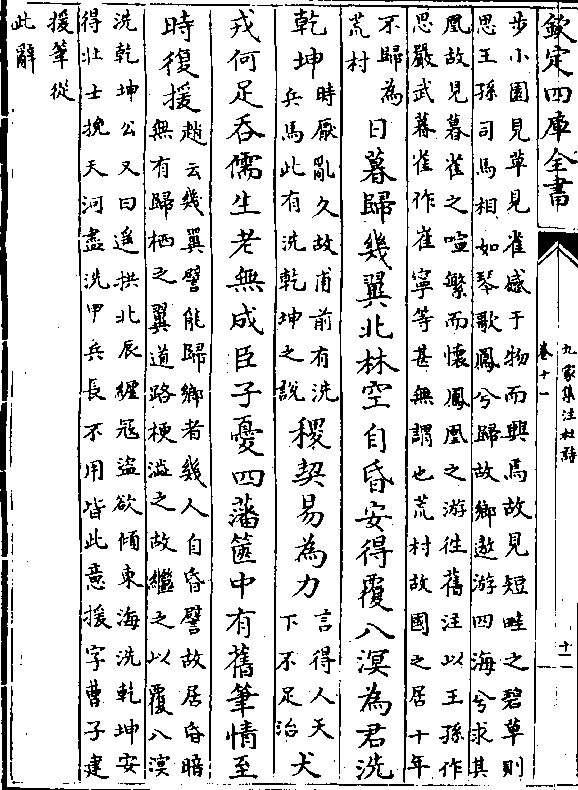 欽定四庫全書
九家集注杜詩
卷十一
十一
步小園見草見雀感于物而興焉故見短畦之碧草則
思王孫司馬相如琴歌鳳兮歸故鄉遨游四海兮求其
凰故見暮雀之喧繁而懷鳳凰之游徃舊注以王孫作
思嚴武暮雀作崔寧等甚無謂也荒村故國之居十年
不歸為
荒村
日暮歸幾翼北林空自昏安得覆八溟為君洗
乾坤
時厭亂久故甫前有洗
兵馬此有洗乾坤之說
稷契易為力
言得人天
下不足治
犬
戎何足吞儒生老無成臣子憂四藩篋中有舊筆情至
時復援
趙云幾翼譬能歸鄉者幾人自昏譬故居昏暗
無有歸栖之翼道路梗澁之故繼之以覆八溟
洗乾坤公又曰遥拱北辰纏冦盜欲傾東海洗乾坤安
得壮士挽天河盡洗甲兵長不用皆此意援字曹子建
援筆從
此辭